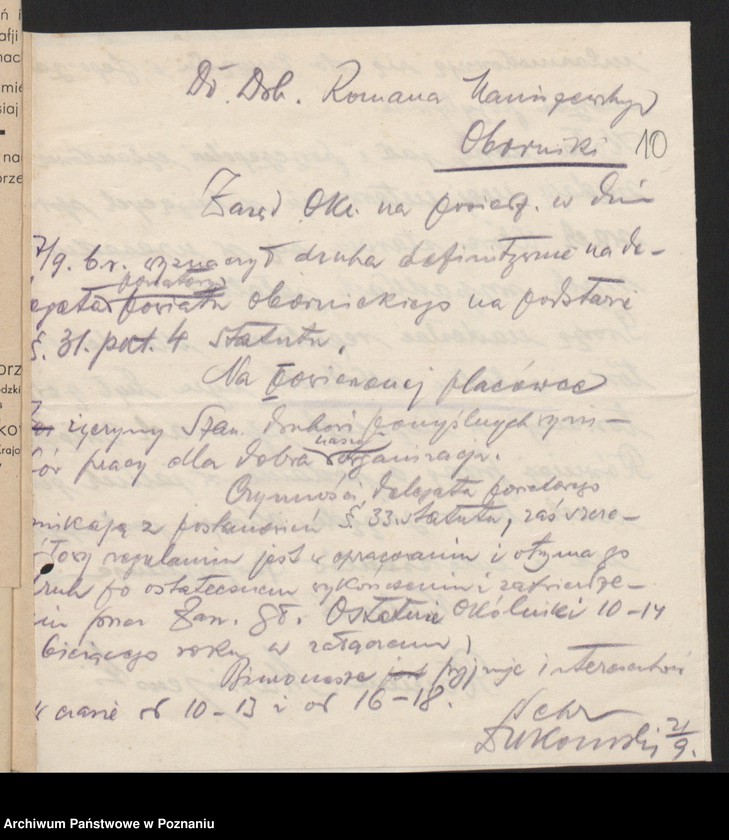 Do Drh. Romana
Oborniki 10
Zarząd Okr. na posiedz. w dniu
7/9. b.r. wyznaczył druha definitywnie na de-
legata powiatu obornickiego na podstawie
§. 31. pkt. 4 statutu.
Na powierzonej placówce
życzymy Szan. druhowi pomyślnych wyni-
ków pracy dla dobra naszej organizacji.
Czynności delegata powiatowego
wynikają z postanowień §. 33. statutu, zaś szcze-
gółowy regulamin jest w opracowaniu i otrzyma go
druh po ostatecznem wykończeniu i zatwierdze-
niu przez Zarz. Gł. Ostatnie Okólniki 10-14
bieżącego roku w załączeniu!
Biuro nasze przyjmuje interesentów
w czasie od 10-13 i od 16-18.
21/9.
Archiwum Państwowe w Poznaniu